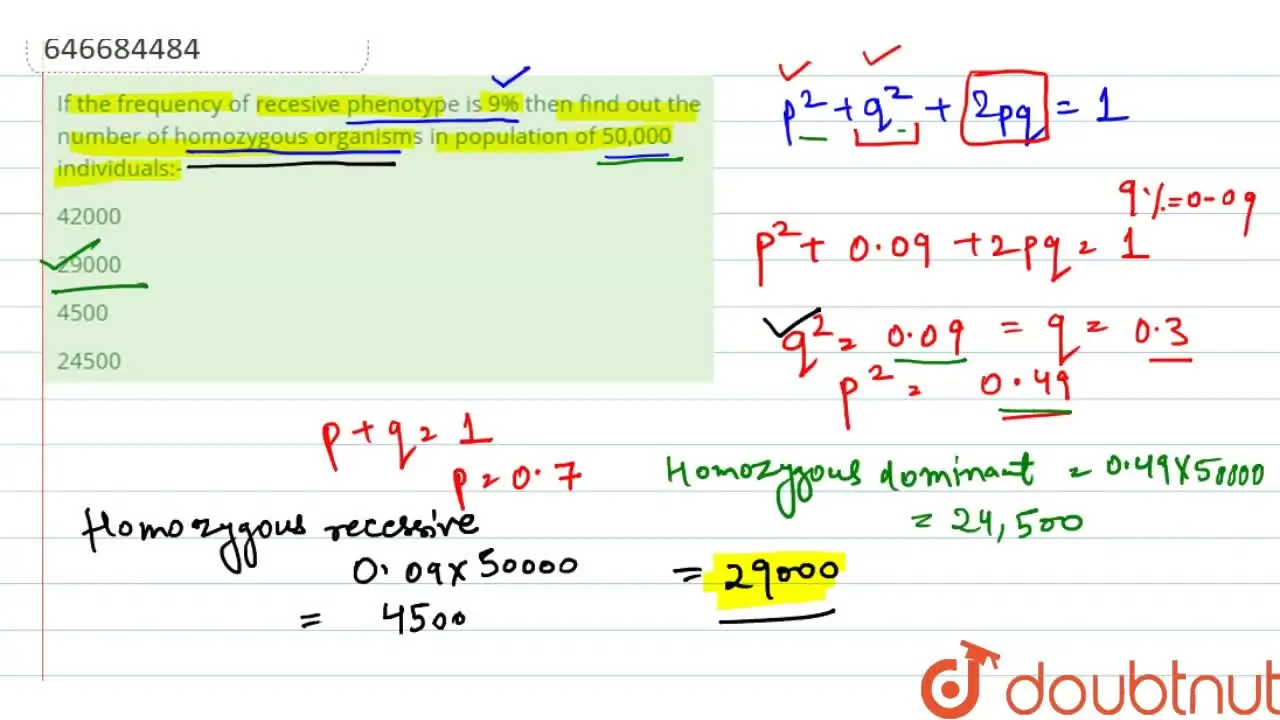 646684484
If the frequency of recesive phenotype is 9% then find out the
number of homozygous organisms in population of 50,000
individuals:-
42000
29000
4500
24500
p² + q² + 2pq = 1
9% = 0-09
p² + 0.09 + 2pq = 1
q² = 0.09 = q = 0.3
p² = 0.49
p + q = 1
p = 0.7
Homozygous dominant = 0.49 X 50000
= 24,500
Homozygous recessive
0.09 X 50000
= 4500
= 29000
doubtnut